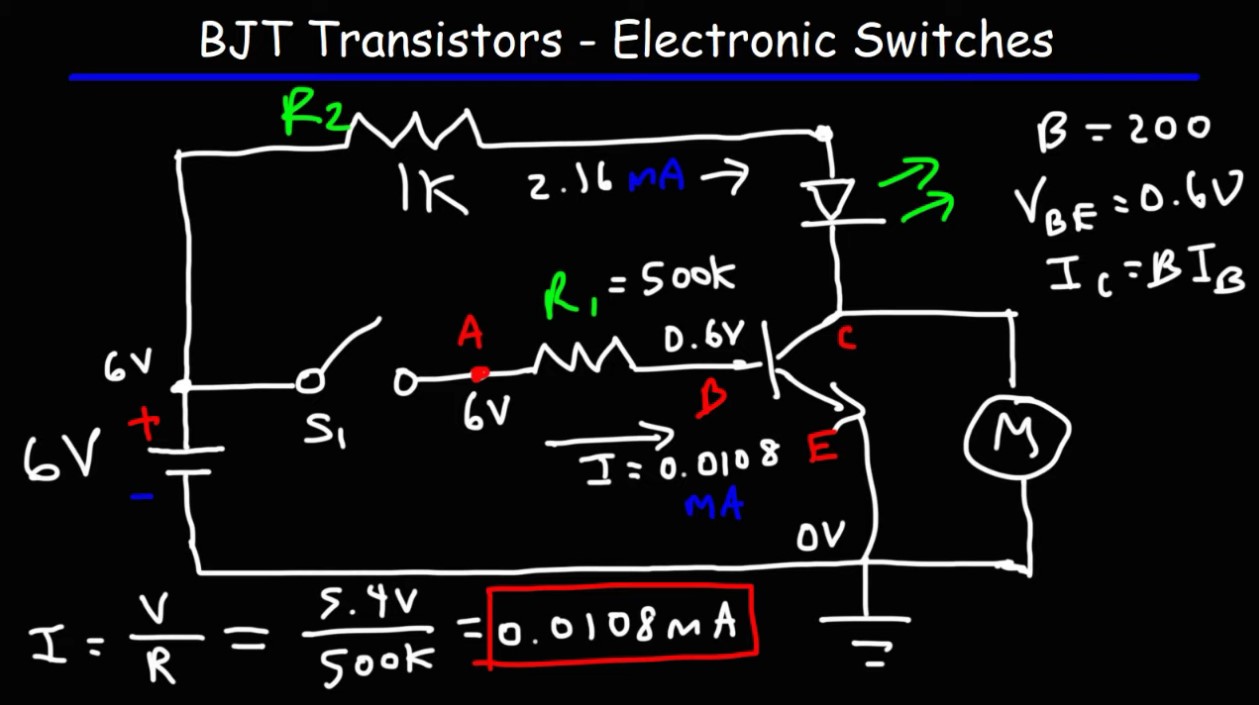 BJT Transistors - Electronic Switches
R2
1K
2.16 mA →
β = 200
VBE = 0.6V
IC = βIB
R1 = 500k
A
0.6V
C
6V
S1
6V
B
M
+
6V
-
I = 0.0108
mA
E
0V
I = V/R = 5.4V/500k = 0.0108mA